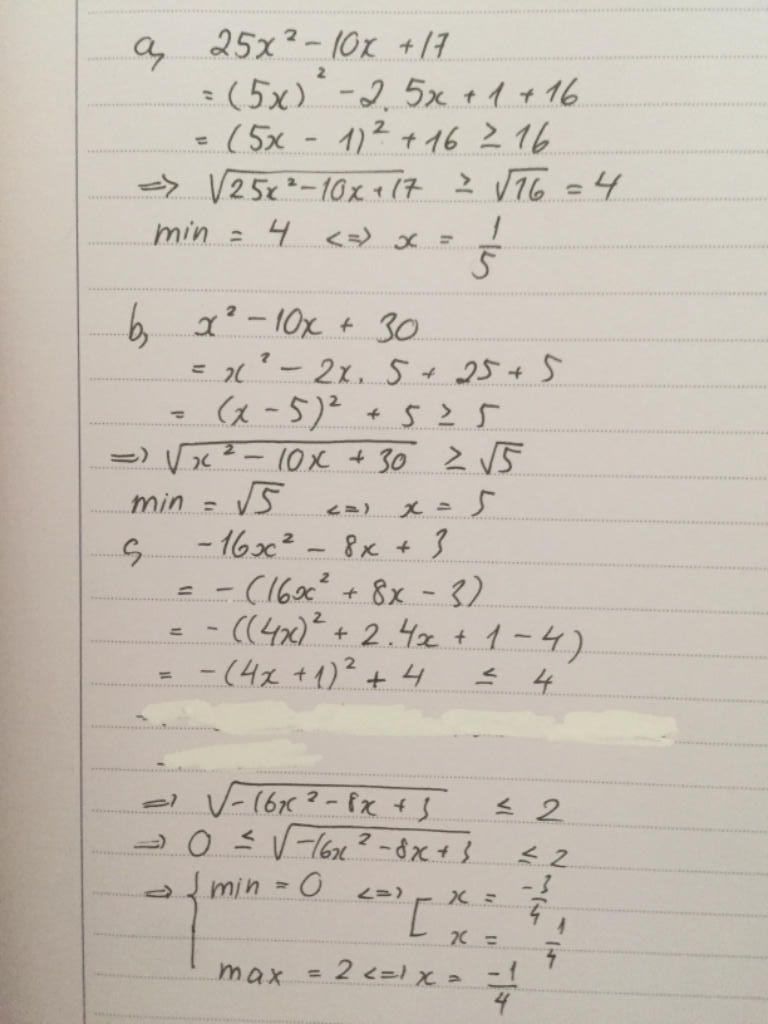 a, 25x² - 10x + 17
= (5x)² - 2. 5x + 1 + 16
= (5x - 1)² + 16 ≥ 16
=> √(25x² - 10x + 17) ≥ √16 = 4
min = 4 <=> x = 1/5
b, x² - 10x + 30
= x² - 2x. 5 + 25 + 5
= (x - 5)² + 5 ≥ 5
=> √(x² - 10x + 30) ≥ √5
min = √5 <=> x = 5
c, -16x² - 8x + 3
= -(16x² + 8x - 3)
= -((4x)² + 2.4x + 1 - 4)
= -(4x + 1)² + 4 ≤ 4
=> √(-16x² - 8x + 3) ≤ 2
=> 0 ≤ √(-16x² - 8x + 3) ≤ 2
=> { min = 0 <=> [ x = -3/4
x = 1/4
max = 2 <=> x = -1/4